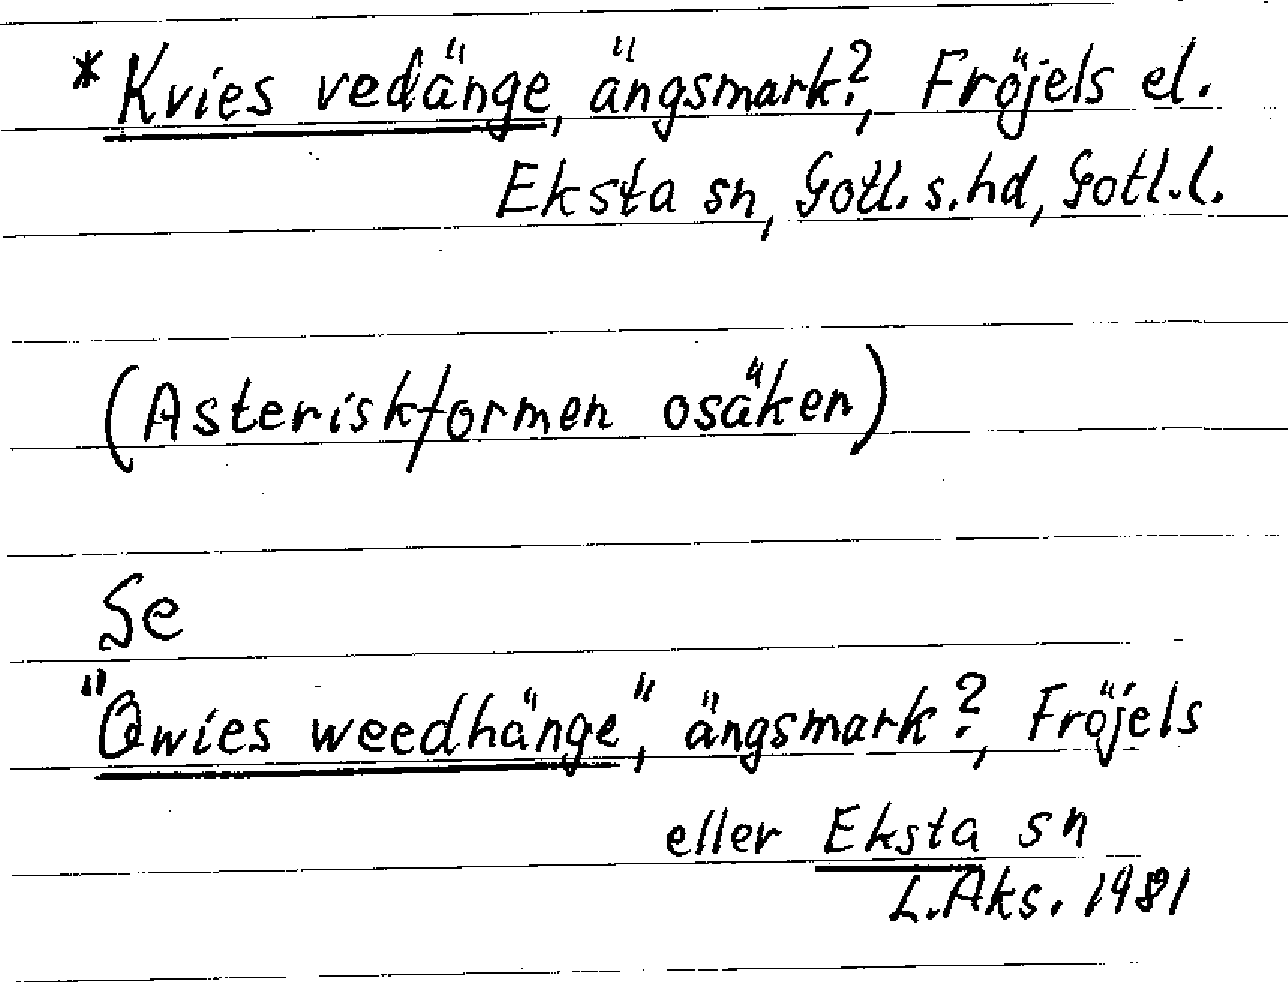 *Kvies vedänge, ängsmark?, Fröjels el.
Eksta sn, Gotl. s. hd, Gotl. l.
(Asteriskformen osäken)
Se
"Qwies weedhänge", ängsmark?, Fröjels
eller Eksta sn
L. Aks. 1981